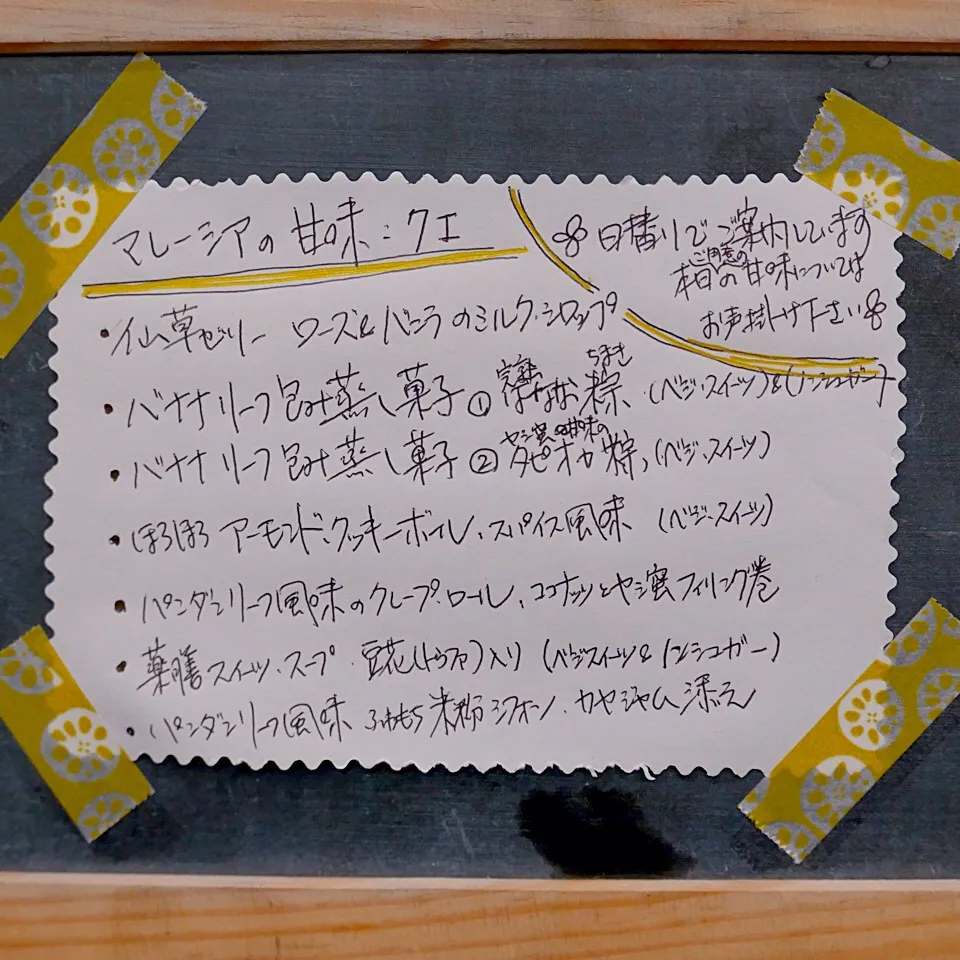 マレーシアの甘味:クエ
日替りでご案内しています
ご用意の
本日の甘味については
お声掛け下さい
・仙草ゼリー ローズ&バニラのミルク・シロップ
・バナナリーフ包み蒸し菓子① ばなな粽 (ベジ・スイーツ)&(ノンシュガー)
ちまき
・バナナリーフ包み蒸し菓子② タピオカ粽、(ベジ、スイーツ)
ヤシ蜜の甘味の
・ほろほろ アーモンド・クッキーボール、スパイス風味 (ベジ、スイーツ)
・パンダンリーフ風味のクレープ・ロール、ココナッツとヤシ蜜フィリング巻
・薬膳スイーツ・スープ 豆花(トウファ)入り (ベジスイーツ&ノンシュガー)
・パンダンリーフ風味 ふわもち米粉シフォン、カヤジャム添え